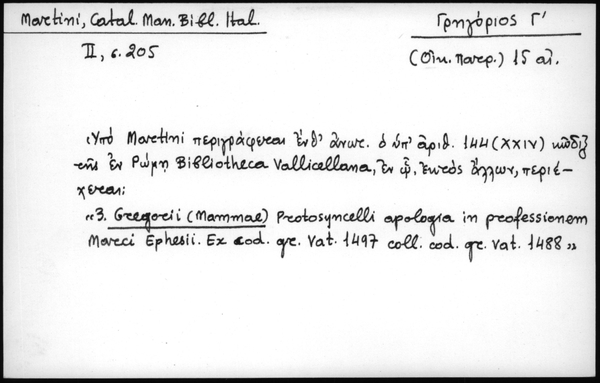 Martini, Catal. Man. Bibl. Ital.
Γρηγόριος Γ'
II, σ. 205
(Οἰκ. πατρ.) 15 αἰ.
Ὑπὸ Martini περιγράφεται ἔνθ' ἀνωτ. ὁ ὑπ' ἀριθ. 144 (XXIV) κῶδιξ
τῆς ἐν Ρώμῃ Bibliotheca Vallicellana, ἐν ᾧ, ἐκτὸς ἄλλων, περιέ-
χεται:
«3. Gregorii (Mammae) Protosyncelli apologia in professionem
Marci Ephesii. Ex cod. gr. Vat. 1497 coll. cod. gr. Vat. 1488»